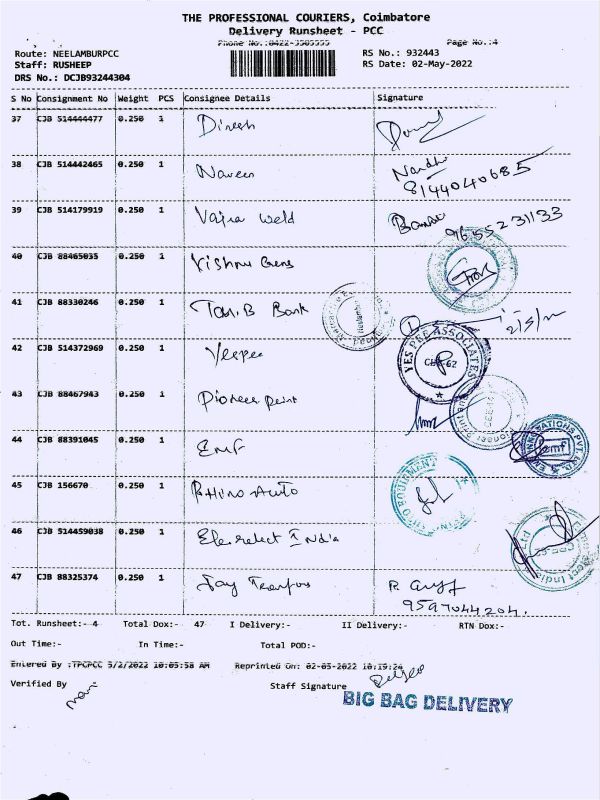 THE PROFESSIONAL COURIERS, Coimbatore
Delivery Runsheet - PCC
Phone No.:0422-3505555 Page No.:4
Route: NEELAMBURPCC RS No.: 932443
Staff: RUSHEEP RS Date: 02-May-2022
DRS No.: DCJB93244304
S No Consignment No Weight PCS Consignee Details Signature
37 CJB 514444477 0.250 1 Dinesh
38 CJB 514442465 0.250 1 Naveen Nandhi
8144040685
39 CJB 514179919 0.250 1 Vajra weld 9655231133
40 CJB 88465035 0.250 1 Vishnu Gens
41 CJB 88330246 0.250 1 Tam.B Bank
2/5/22
42 CJB 514372969 0.250 1 YES PEE ASSOCIATES
CBE-62
43 CJB 88467943 0.250 1 Pioneer print
44 CJB 88391045 0.250 1 EMF emf
45 CJB 156670 0.250 1 Rhino Auto EQUIPMENT
46 CJB 514459038 0.250 1 India
47 CJB 88325374 0.250 1 Jay R
9597044204.
Tot. Runsheet:- 4 Total Dox:- 47 I Delivery:- II Delivery:- RTN Dox:-
Out Time:- In Time:- Total POD:-
Entered By :TPCPCC 5/2/2022 10:05:58 AM Reprinted On: 02-05-2022 10:19:24
Verified By Staff Signature
BIG BAG DELIVERY